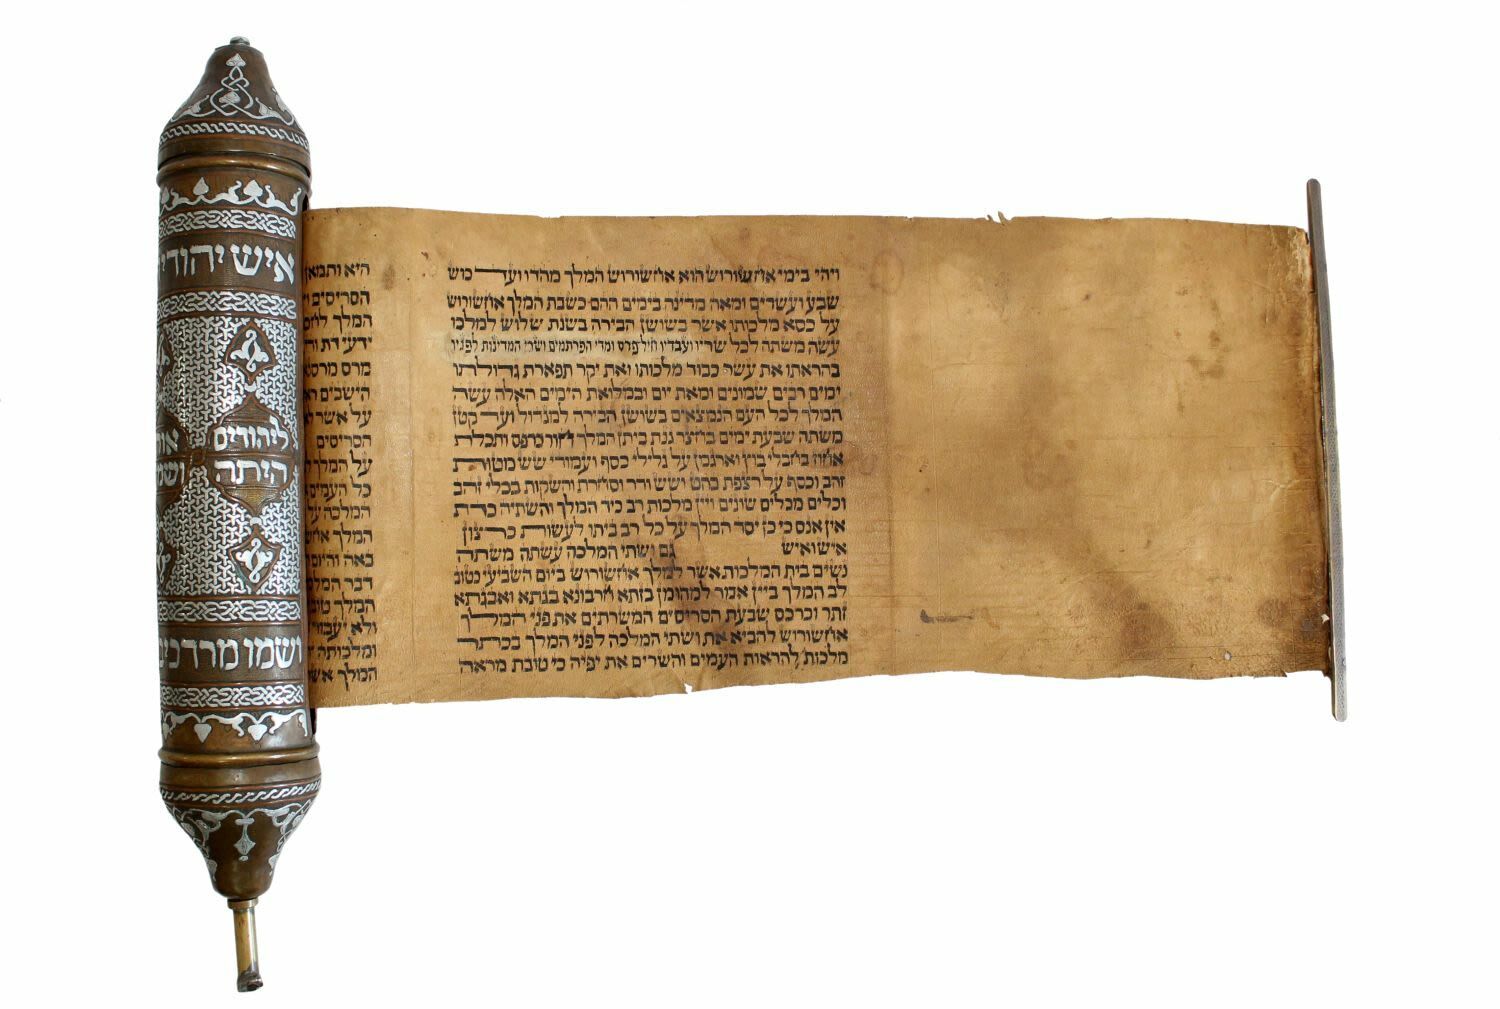 ויהי בימי אחשורוש הוא אחשורוש המלך מהדו ועד כוש
שבע ועשרים ומאה מדינה בימים ההם כשבת המלך אחשורוש
על כסא מלכותו אשר בשושן הבירה בשנת שלוש למלכו
עשה משתה לכל שריו ועבדיו חיל פרס ומדי הפרתמים ושרי המדינות לפניו
בהראתו את עשר כבוד מלכותו ואת יקר תפארת גדולתו
ימים רבים שמונים ומאת יום ובמלואת הימים האלה עשה
המלך לכל העם הנמצאים בשושן הבירה למגדול ועד קטן
משתה שבעת ימים בחצר גנת ביתן המלך חור כרפס ותכלת
אחוז בחבלי בוץ וארגמן על גלילי כסף ועמודי שש מטות
זהב וכסף על רצפת בהט ושש ודר וסחרת והשקות בכלי זהב
וכלים מכלים שונים ויין מלכות רב כיד המלך והשתיה כדת
אין אנס כי כן יסד המלך על כל רב ביתו לעשות כרצון
איש ואיש גם ושתי המלכה עשתה משתה
נשים בית המלכות אשר למלך אחשורוש ביום השביעי כטוב
לב המלך ביין אמר למהומן בזתא חרבונא בגתא ואבגתא
זתר וכרכס שבעת הסריסים המשרתים את פני המלך
אחשורוש להביא את ושתי המלכה לפני המלך בכתר
מלכות להראות העמים והשרים את יפיה כי טובת מראה
היא ותמאן
הסריסים
המלך
ידעי דת
מרס
הישבים
על אשר
הסריסים
על המלך
כל העמים
המלכה על
המלך
באה והיום
דבר
המלך טוב
ולא יעבור
ומלכותה
המלך
איש יהודי
ליהודים
היתה
ושמו מרדכי